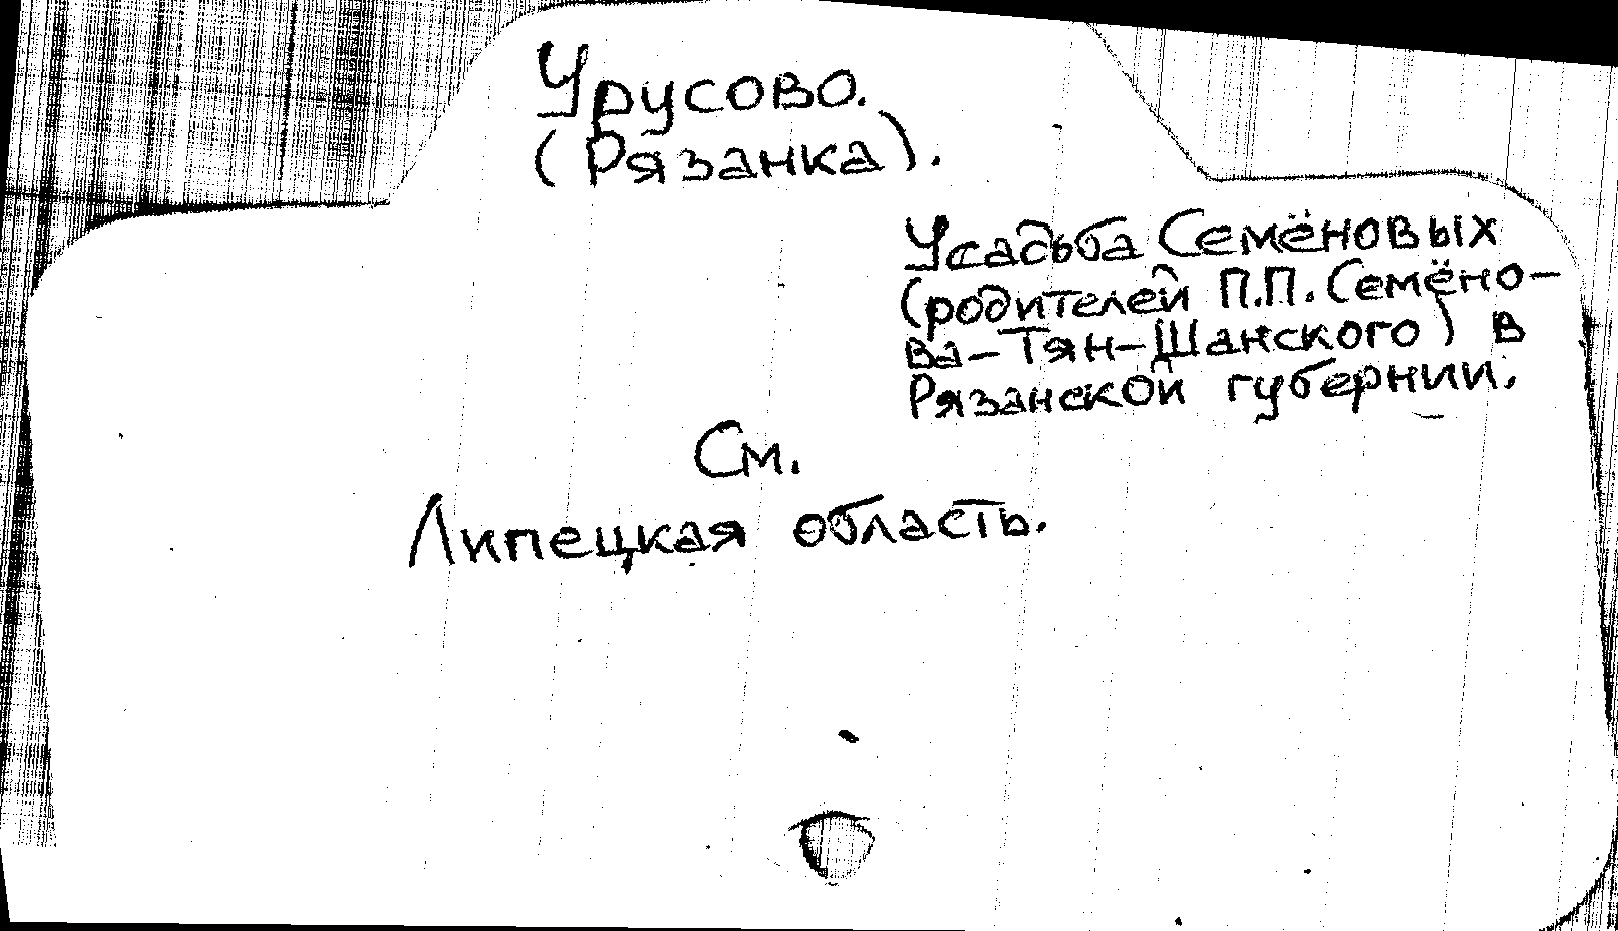 Урусово.
(Рязанка).
Усадьба Семёновых
(родителей П.П. Семёно-
ва-Тян-Шанского) в
Рязанской губернии.
См.
Липецкая область.